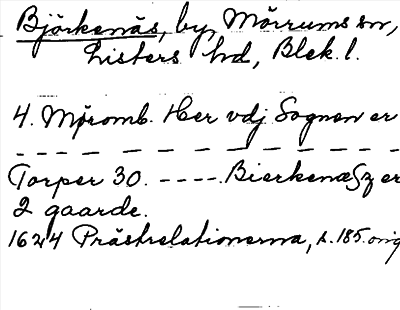 Björkenäs, by, Mörrums sn,
Listers hd, Blek. l.
4. Mỏromb. Her vdj Sognen er
Torper 30. ---- Bierkenæsz er
2 gaarde.
1624 Prästrelationerna, s. 185. orig